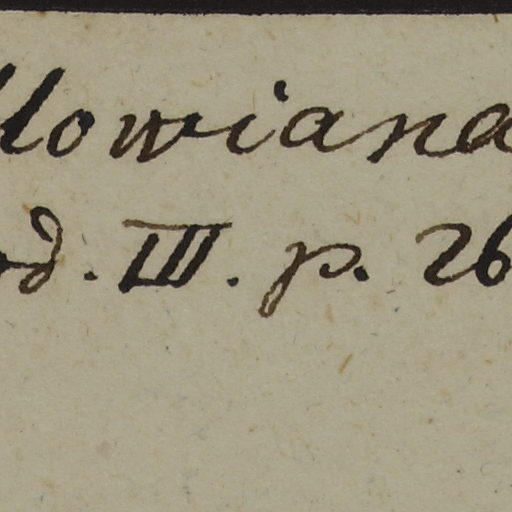 llowiana
od. III. p. 26